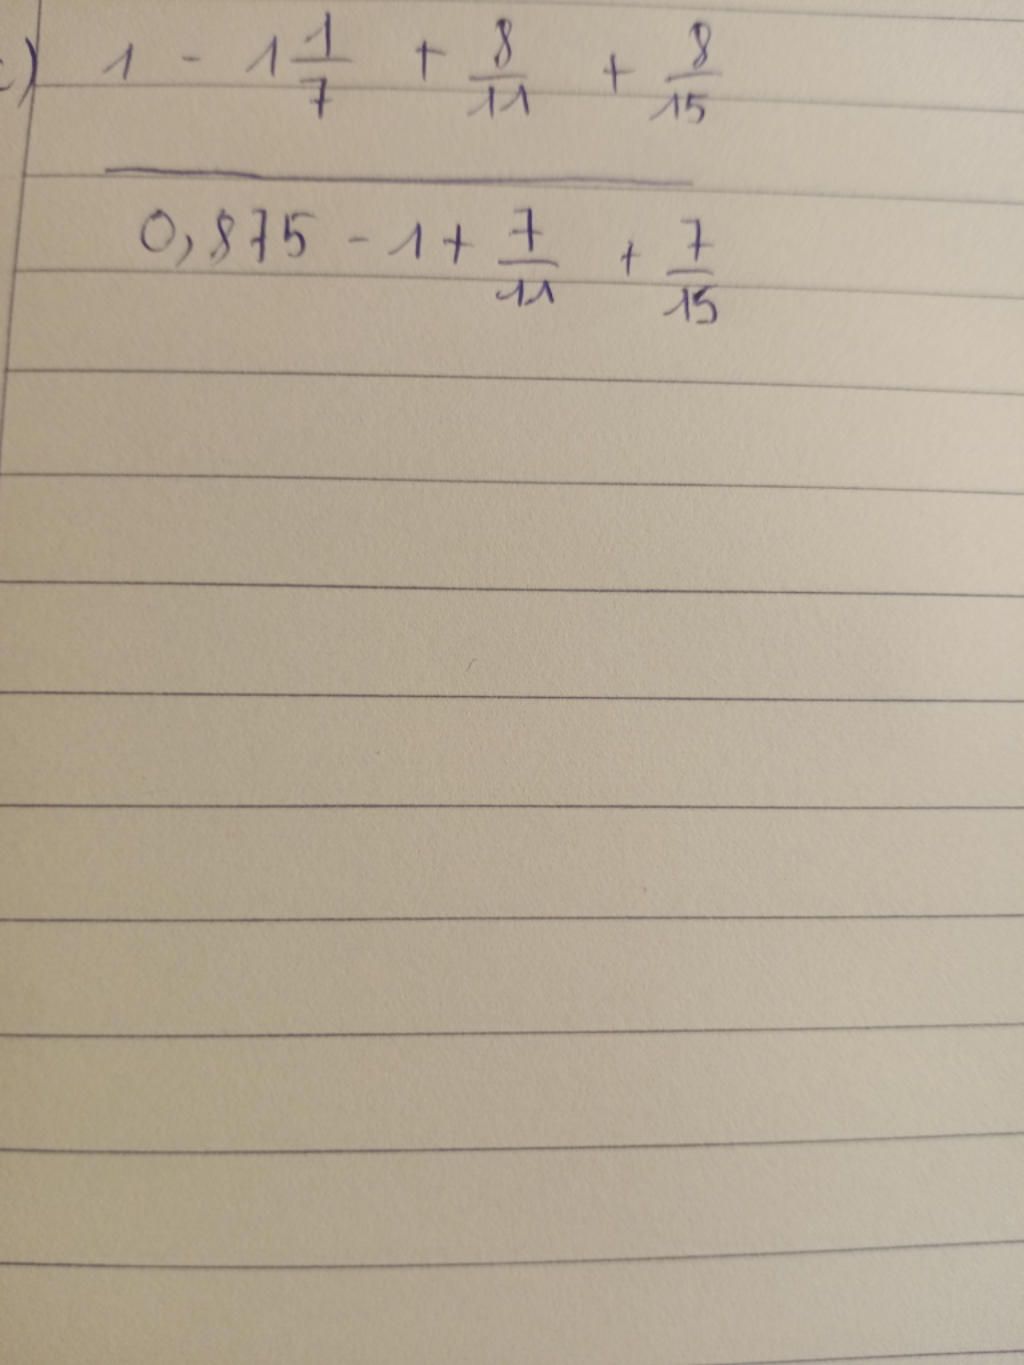 c) 1 - 1 1/7 + 8/11 + 8/15
0,875 - 1 + 7/11 + 7/15